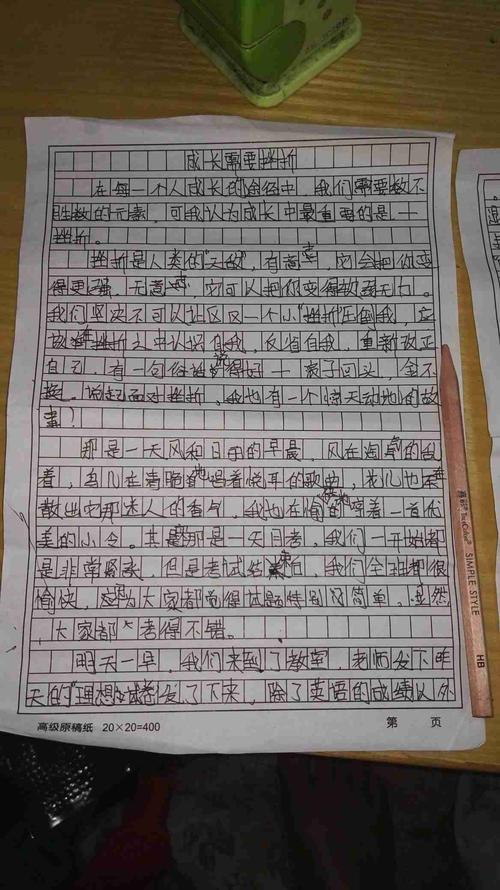 成长需要挫折
在每一个人成长的途径中，我们需要数不
胜数的元素，可我认为成长中最重要的是——
挫折。
挫折是人类的"天敌"，有意志，它会把你变
得更强，无意志，它可以把你变得软弱无力。
我们坚决不可以让区区一个小"挫折压倒我，应
该在挫折之中认识自我，反省自我，重新改正
自己，有一句俗话说得好——浪子回头，金不
换。说起面对挫折，我也有一个惊天动地的故
事！
那是一天风和日丽的早晨，风在淘气的刮
着，鸟儿在清脆地唱着悦耳的歌曲，花儿也在
散出它那迷人的香气，我也在愉快地唱着一首优
美的小令。其实那是一天月考，我们一开始都
是非常紧张，但是考试结束后，我们全班都很
愉快，因为大家都觉得试题特别的简单，显然，
大家都考得不错。
明天一早，我们来到了教室，老师发下昨
天的"理想"试卷发了下来，除了英语的成绩以外
高级原稿纸 20×20=400
第 页
SIMPLE STYLE
HB